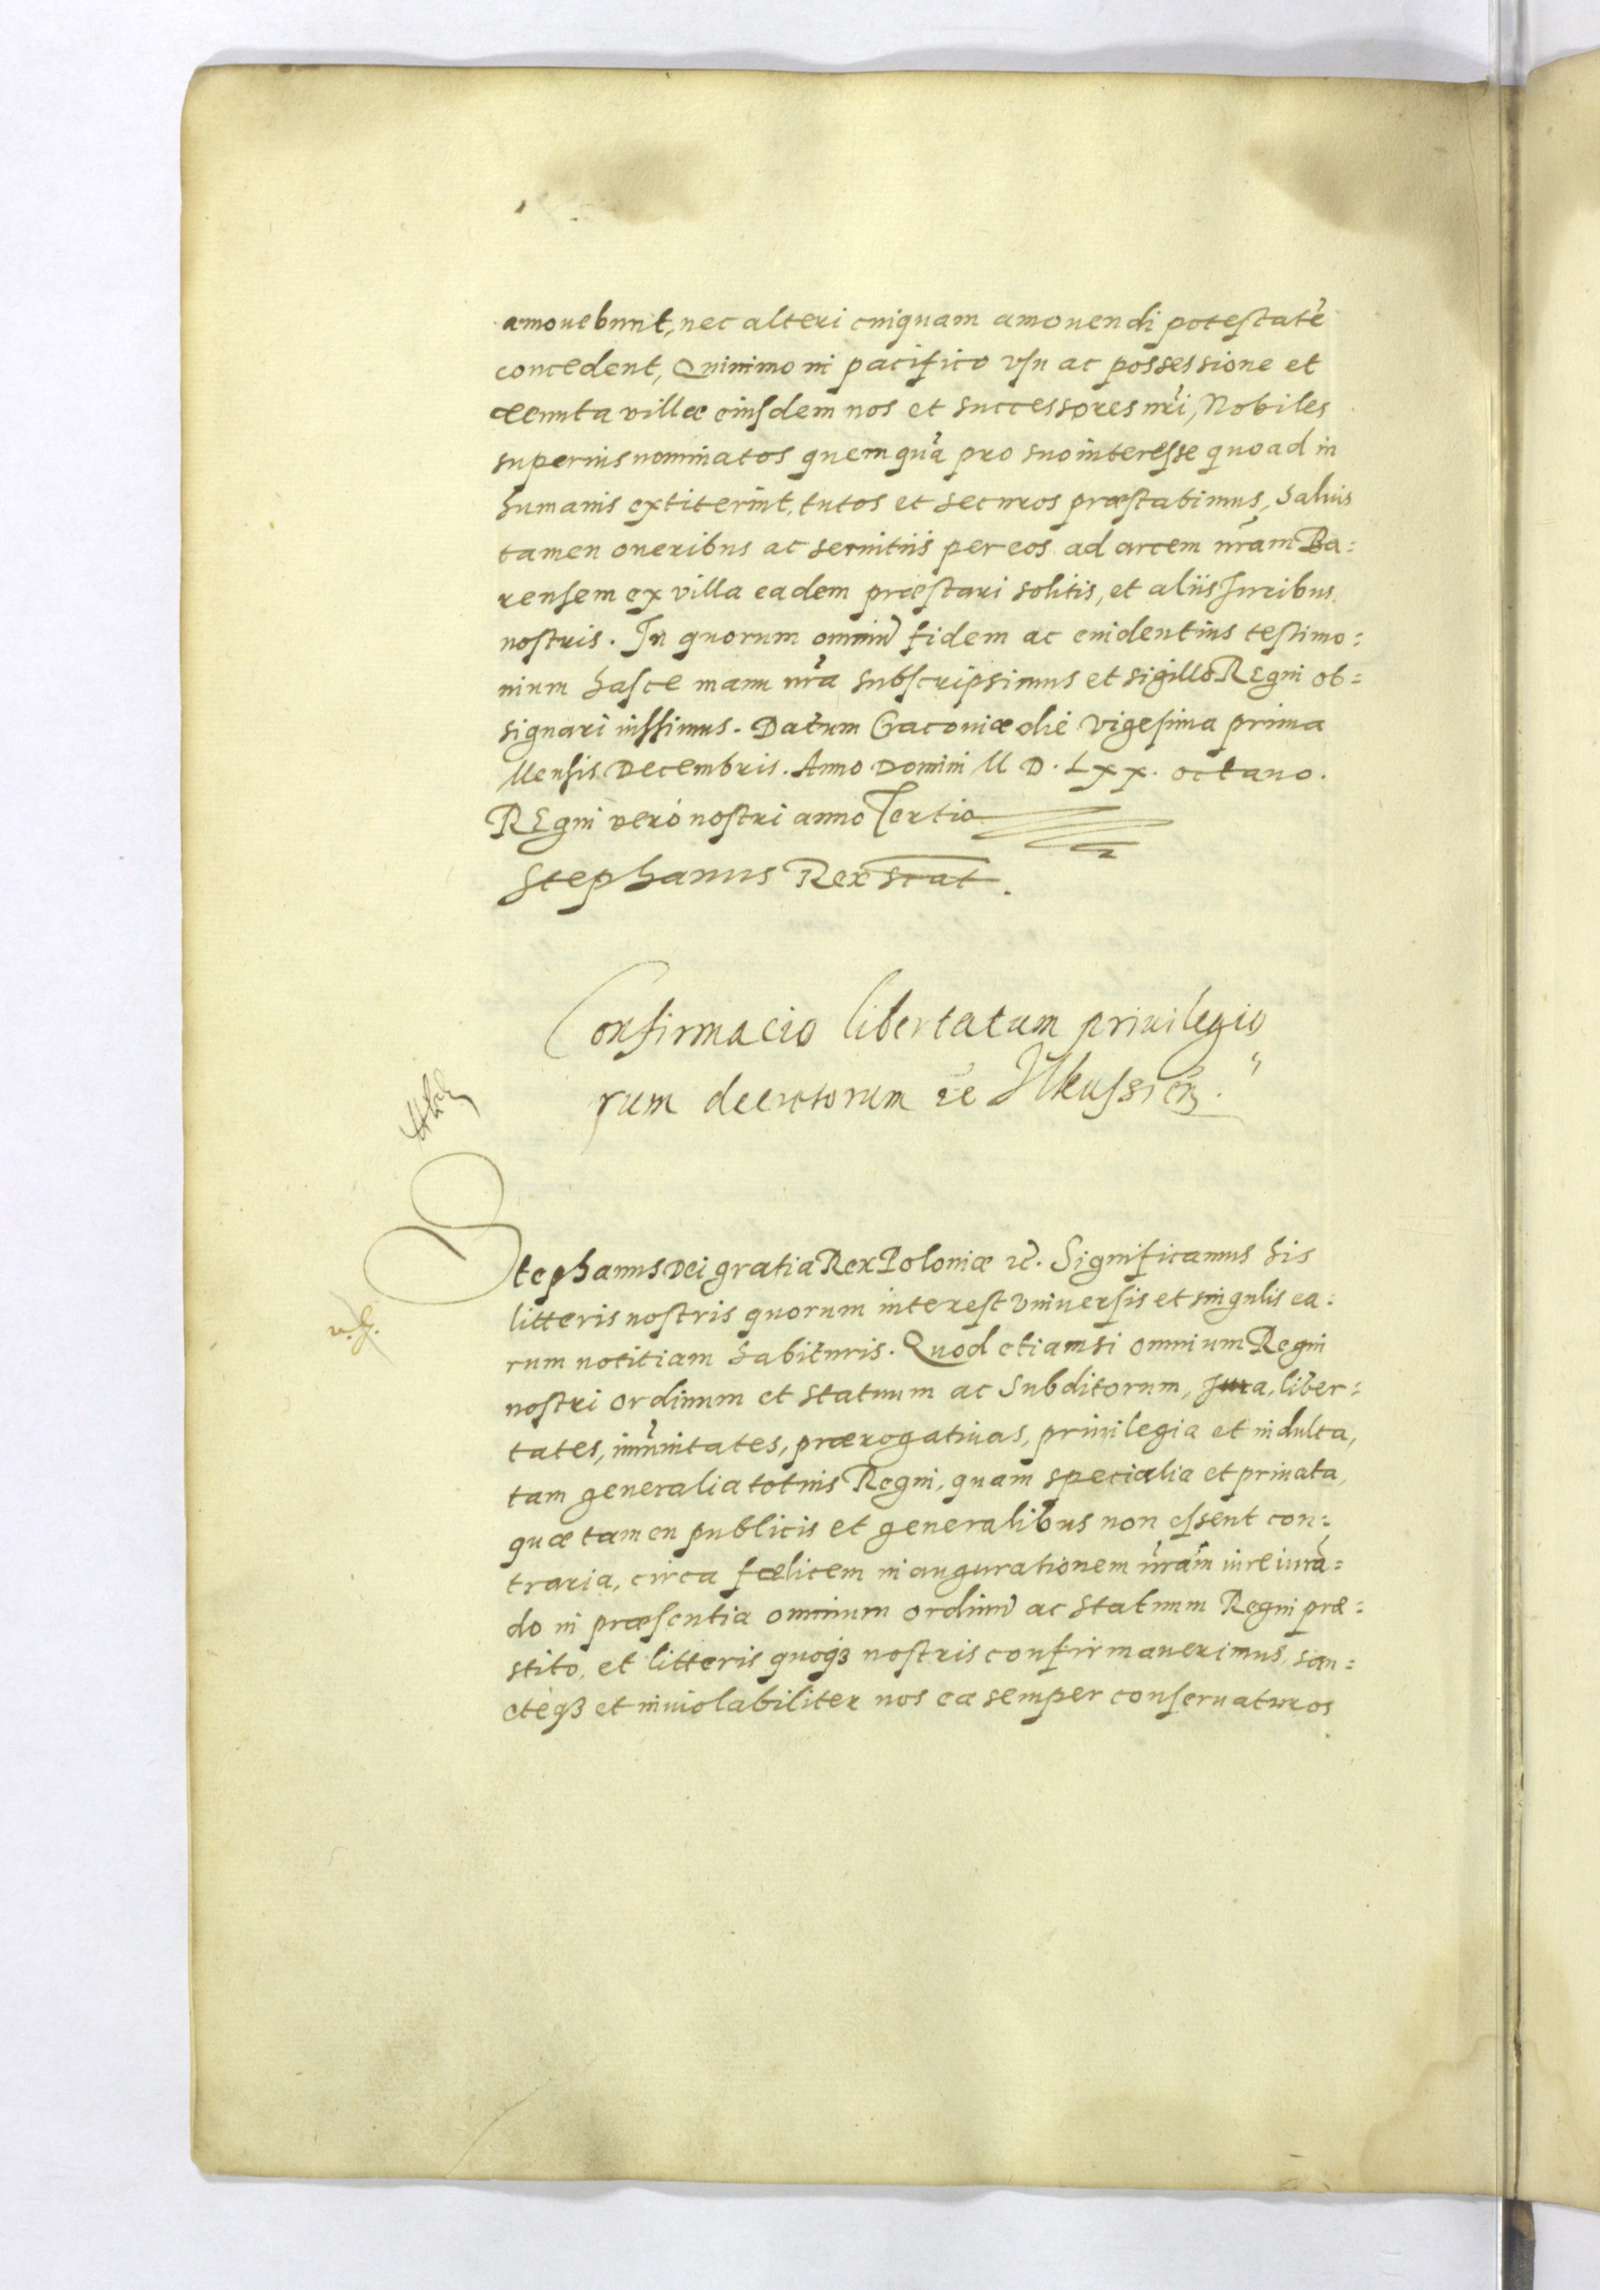 amouebunt, nec alteri cuiquam amouendi potestatẽ
concedent, Quinimo in pacifico vsu ac possessione et
tenuta villæ eiusdem nos et successores nr̃i, Nobiles
superius nominatos quemquã pro suo interesse quoad in
humanis extiterint, tutos et securos præstabimus, Saluis
tamen oneribus ac seruitiis per eos ad arcem nr̃am Ba:
rensem ex villa eadem præstari solitis, et aliis Juribus
nostris. In quorum omniũ fidem ac euidentius testimo:
nium hasce manu nr̃a subscripsimus et sigillo REgni ob:
signari iussimus. Datum Cracouiæ die vigesima prima
Mensis Decembris. Anno Domini M D. Lxx. octauo.
REgni veró nostri anno Tertio
Stephanus Rex
Confirmacio libertatum priuilegio
rum decretorum ꝛc Ilkussien̄.
Stephanus Dei gratia Rex Poloniæ ꝛc. Significamus his
litteris nostris quorum interest vniuersis et singulis ea:
rum notitiam habituris. Quod etiamsi omnium Regni
nostri ordinum et statuum ac Subditorum, Jura, liber:
tates, imũnitates, prærogatiuas, priuilegia et indulta,
tam generalia totius Regni, quam specialia et priuata,
quæ tamen publicis et generalibus non essent con:
traria, circa fœlicem inaugurationem nr̃am iureiurã:
do in præsentia omnium ordinũ ac statuum Regni præ:
stito, et litteris quoqꝫ nostris confirmauerimus, san:
ctèqꝫ et inuiolabiliter nos ea semper conseruaturos